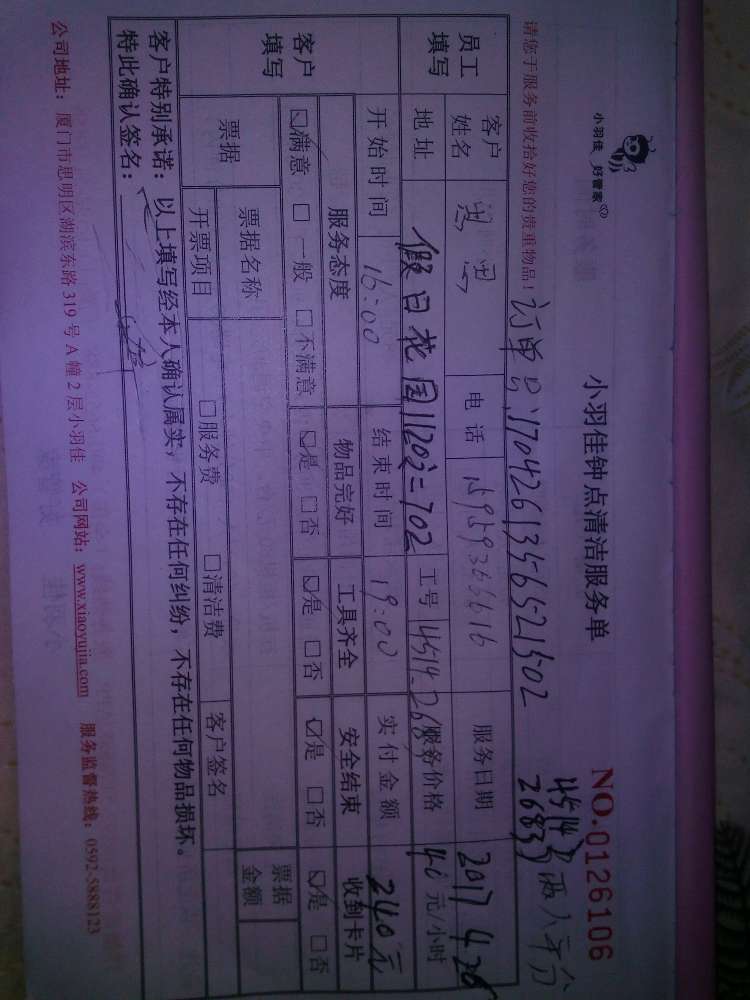 小羽佳 好管家
小羽佳钟点清洁服务单
NO.0126106
请您于服务前收拾好您的贵重物品！
订单号:1704261356521502
4514
2683
两人平分
员工填写
客户姓名
电话 15959366616
服务日期 2017 4 26
地址 假日花园1120之二702
工号 4514-2683
服务价格 40 元/小时
客户填写
开始时间 16:00
结束时间 19:00
实付金额 240元
服务态度 物品完好 工具齐全 安全结束 收到卡片
☑满意 □一般 □不满意 ☑是 □否 ☑是 □否 ☑是 □否 ☑是 □否
票据
票据名称
票据金额
开票项目 □服务费 □清洁费
客户签名
客户特别承诺：以上填写经本人确认属实，不存在任何纠纷，不存在任何物品损坏。
特此确认签名：
公司地址：厦门市思明区湖滨东路 319 号 A 幢 2 层小羽佳 公司网站：www.xiaoyujia.com 服务监督热线：0592-5888123